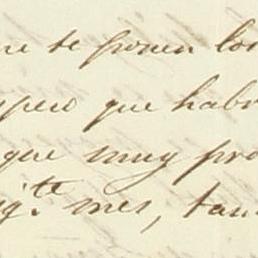 me te ponen los
espero que habr
que muy pro
sigte mes, tam